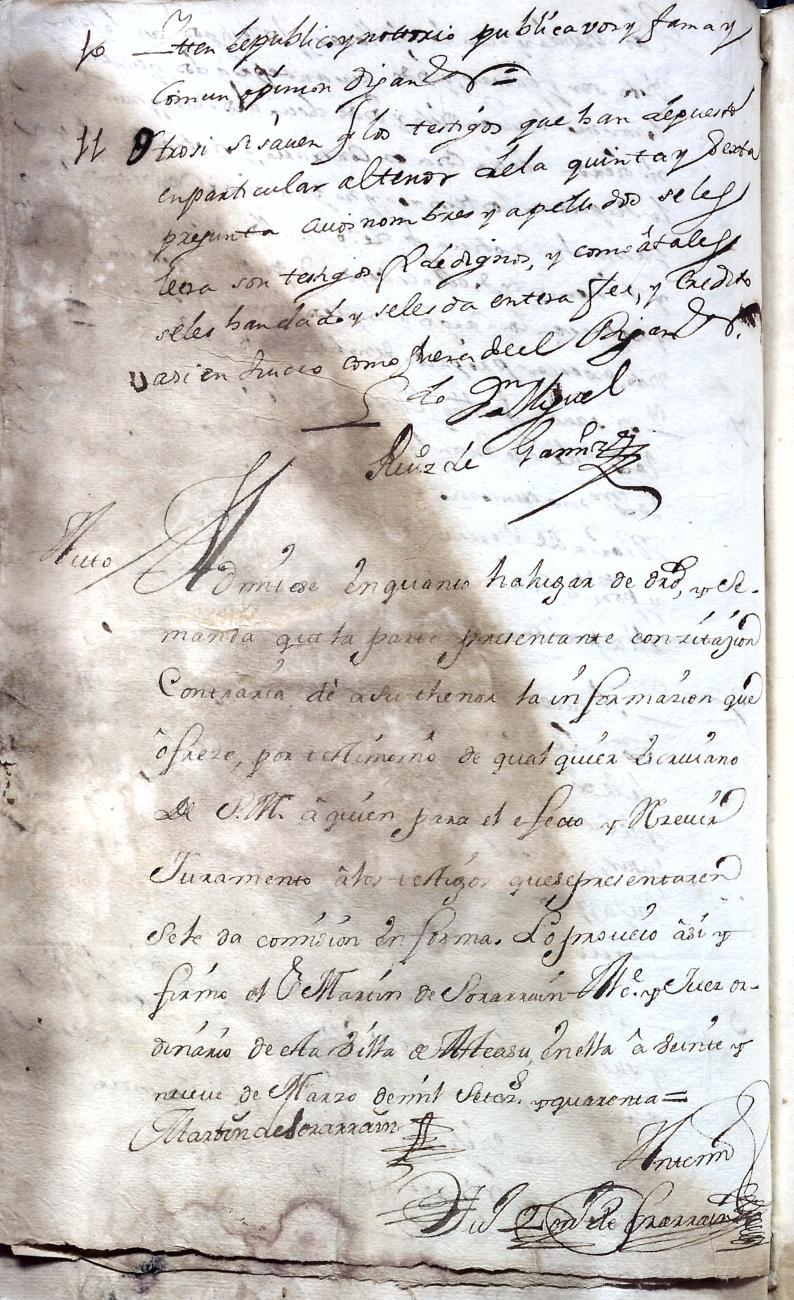 10 Iten de publico y nottorio publica voz y fama y
comun opinion digan
11 Otrosi si sauen q los testigos que han depuesto
en particular al tenor de la quinta y sexta
pregunta cuios nombres y apellidos se les
leera son testigos fidedignos, y como â tales
se les han dado y se les da entera fee, y credito
y asi en juicio como fuera de el Digan
Ldo Dn Miguel
Ruiz de
Auto Admitese en quanto ha lugar de dro, y se
manda que la parte presentante con zitazion
Contraria dè a su thenor la informazion que
ôfreze, por testimonio de qual quier Escriuano
de S.M. â quien para el efecto y Rreuir
Juramento âlos testigos que se presentaren
se le da comision en forma. Lo proueio âsi y
firmo el Sr Martin de Sorarrain Alce. y Juez or-
dinario de esta Villa de Alteasu, en ella â veinte y
nueue de Marzo de mil Setezs. y quarenta =
Martin de Sorarrain
Ante mi
de Sorarrain